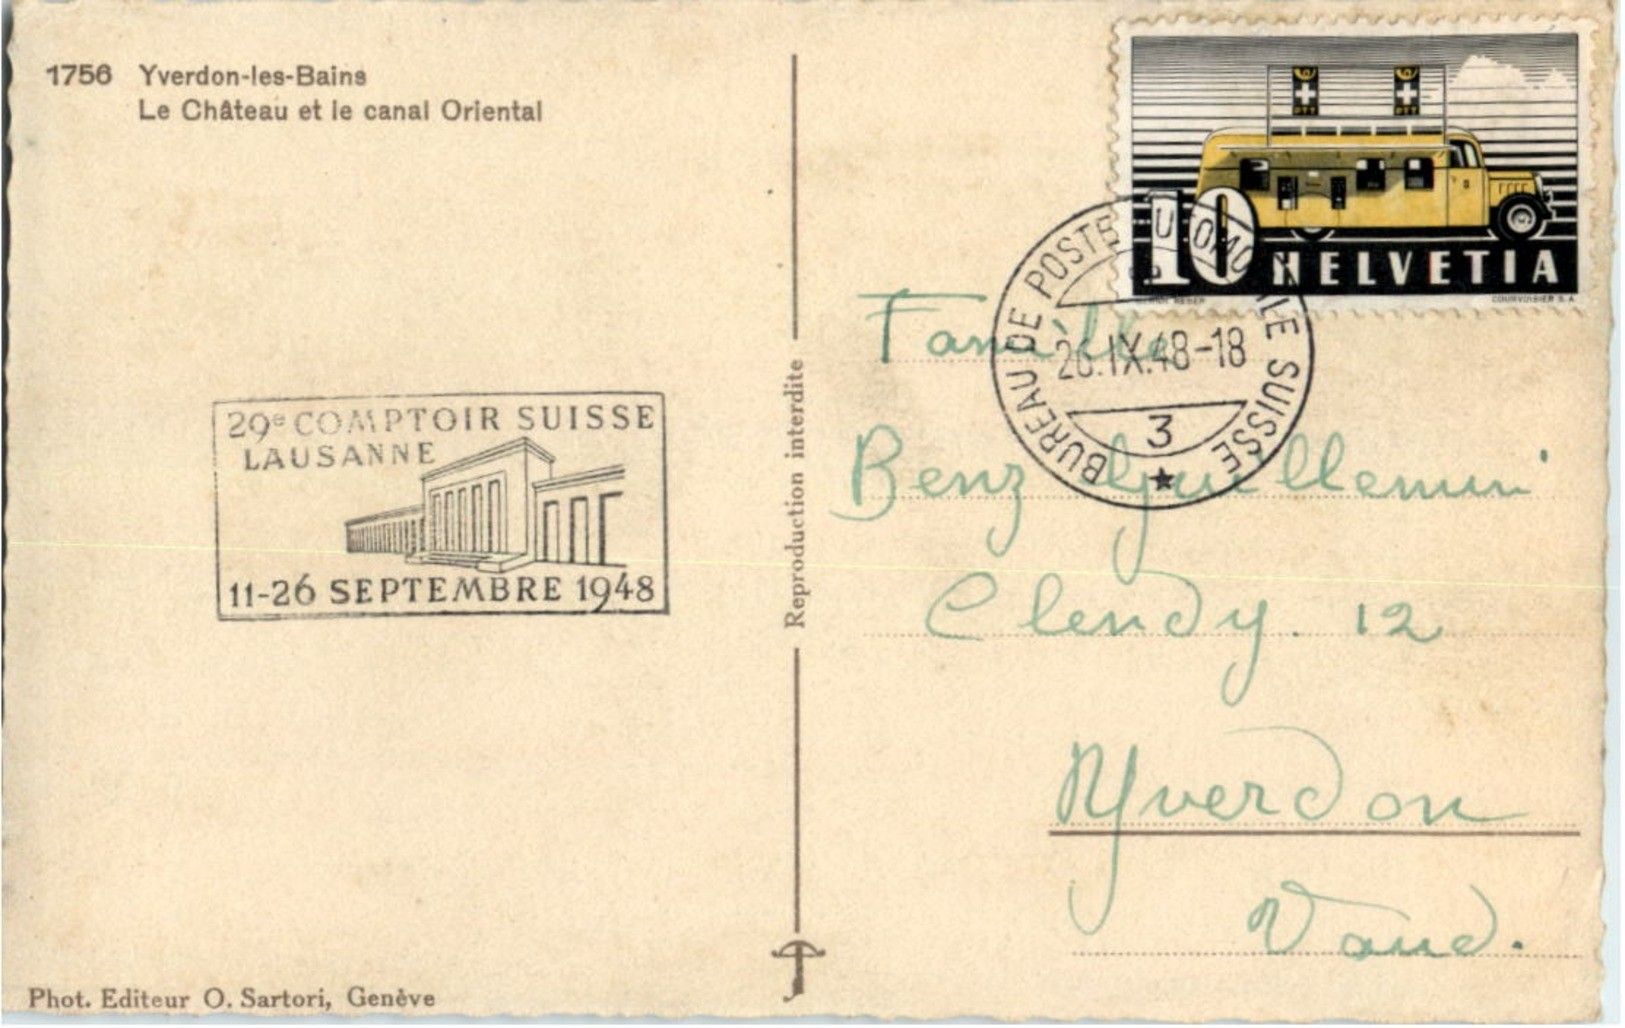 1756 Yverdon-les-Bains
Le Château et le canal Oriental
PTT PTT
10 HELVETIA
COURVOISIER S.A
BUREAU DE POSTE AUTOMOBILE SUISSE
26.IX.48-18
3
29e COMPTOIR SUISSE
LAUSANNE
11-26 SEPTEMBRE 1948
Reproduction interdite
Famille
Benz Guillemin
Clendy. 12
Yverdon
Vaud.
Phot. Editeur O. Sartori, Genève